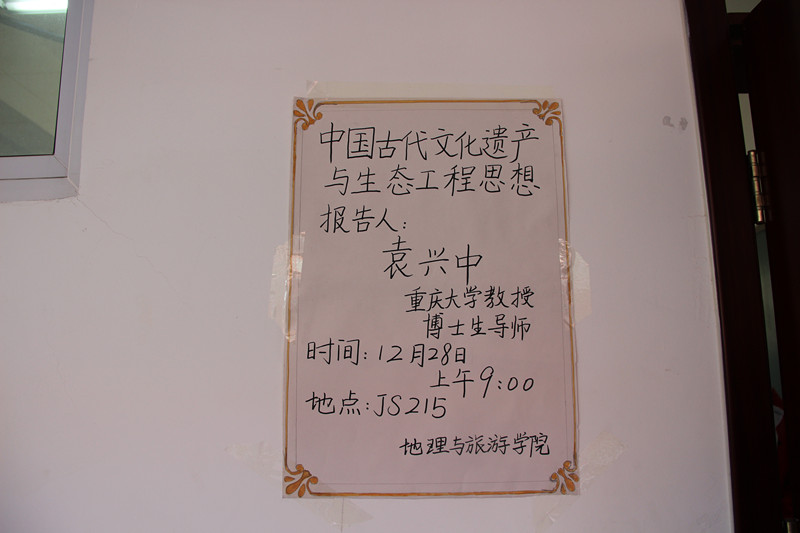 中国古代文化遗产
与生态工程思想
报告人:
袁兴中
重庆大学教授
博士生导师
时间:12月28日
上午9:00
地点:JS215
地理与旅游学院